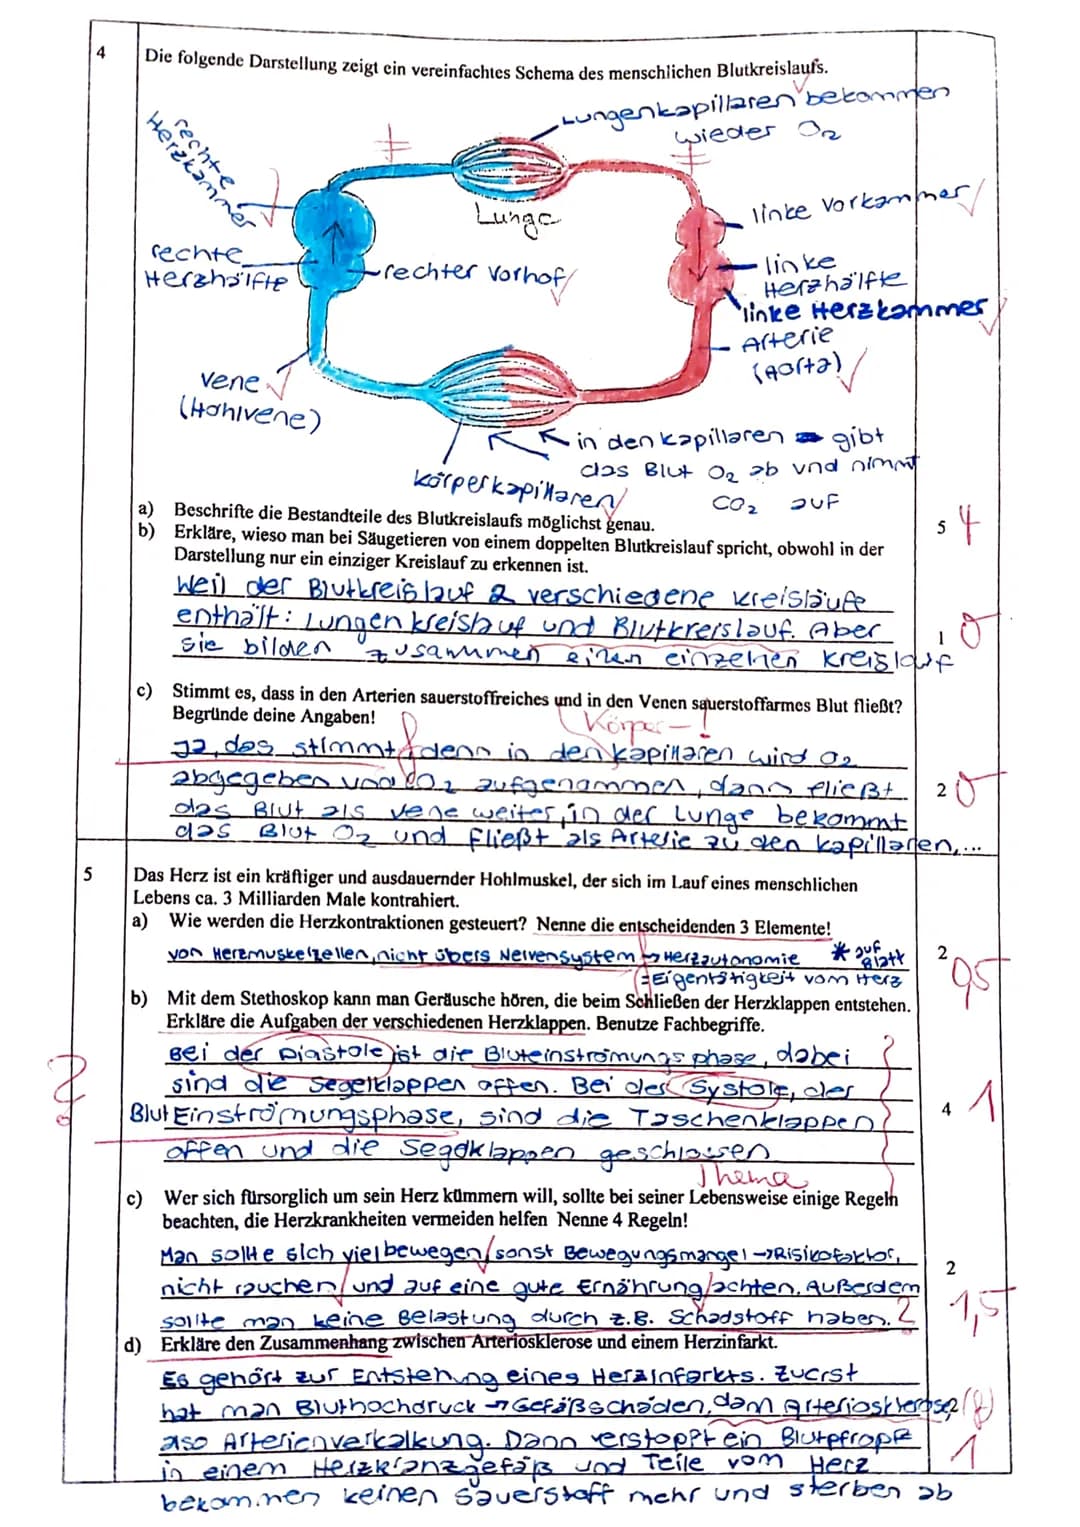 4 Die folgende Darstellung zeigt ein vereinfachtes Schema des menschlichen Blutkreislaufs.
Lungenkapillaren bekommen
wieder O2
rechte
Herzkammer
Lunge
linke Vorkammer
rechte
Herzhälfte
rechter Vorhof
linke
Herzhälfte
linke Herzkammer
Arterie
(Aorta)
Vene
(Hohlvene)
in den Kapillaren gibt
das Blut O2 ab und nimmt
CO2 auf
Körperkapillaren
a) Beschrifte die Bestandteile des Blutkreislaufs möglichst genau. 5 4
b) Erkläre, wieso man bei Säugetieren von einem doppelten Blutkreislauf spricht, obwohl in der
Darstellung nur ein einziger Kreislauf zu erkennen ist.
Weil der Blutkreislauf 2 verschiedene Kreisläufe
enthält: Lungenkreislauf und Blutkreislauf. Aber 1 0
sie bilden zusammen einen einzelnen Kreislauf
c) Stimmt es, dass in den Arterien sauerstoffreiches und in den Venen sauerstoffarmes Blut fließt?
Begründe deine Angaben!
Körper-!
Ja, das stimmt, denn in den Kapillaren wird O2
abgegeben und CO2 aufgenommen, dann fließt 2 0
das Blut als Vene weiter, in der Lunge bekommt
das Blut O2 und fließt als Arterie zu den Kapillaren,...
5 Das Herz ist ein kräftiger und ausdauernder Hohlmuskel, der sich im Lauf eines menschlichen
Lebens ca. 3 Milliarden Male kontrahiert.
a) Wie werden die Herzkontraktionen gesteuert? Nenne die entscheidenden 3 Elemente!
von Herzmuskelzellen, nicht übers Nervensystem → Herzautonomie * auf Blatt 2
=Eigentätigkeit vom Herz 0,5
b) Mit dem Stethoskop kann man Geräusche hören, die beim Schließen der Herzklappen entstehen.
Erkläre die Aufgaben der verschiedenen Herzklappen. Benutze Fachbegriffe.
Bei der Diastole ist die Bluteinströmungsphase, dabei
sind die Segelklappen offen. Bei der Systole, der
Blut Einströmungsphase, sind die Taschenklappen 4 1
offen und die Segelklappen geschlossen
Thema
c) Wer sich fürsorglich um sein Herz kümmern will, sollte bei seiner Lebensweise einige Regeln
beachten, die Herzkrankheiten vermeiden helfen Nenne 4 Regeln!
Man sollte sich viel bewegen, sonst Bewegungsmangel → Risikofaktor,
nicht rauchen und auf eine gute Ernährung achten. Außerdem 2
sollte man keine Belastung durch z.B. Schadstoff haben. ? 1,5
d) Erkläre den Zusammenhang zwischen Arteriosklerose und einem Herzinfarkt.
Es gehört zur Entstehung eines Herzinfarkts. Zuerst
hat man Bluthochdruck → Gefäßschäden, dann Arteriosklerose, 2
also Arterienverkalkung. Dann verstopft ein Blutpfropf 1
in einem Herzkranzgefäß und Teile vom Herz
bekommen keinen Sauerstoff mehr und sterben ab